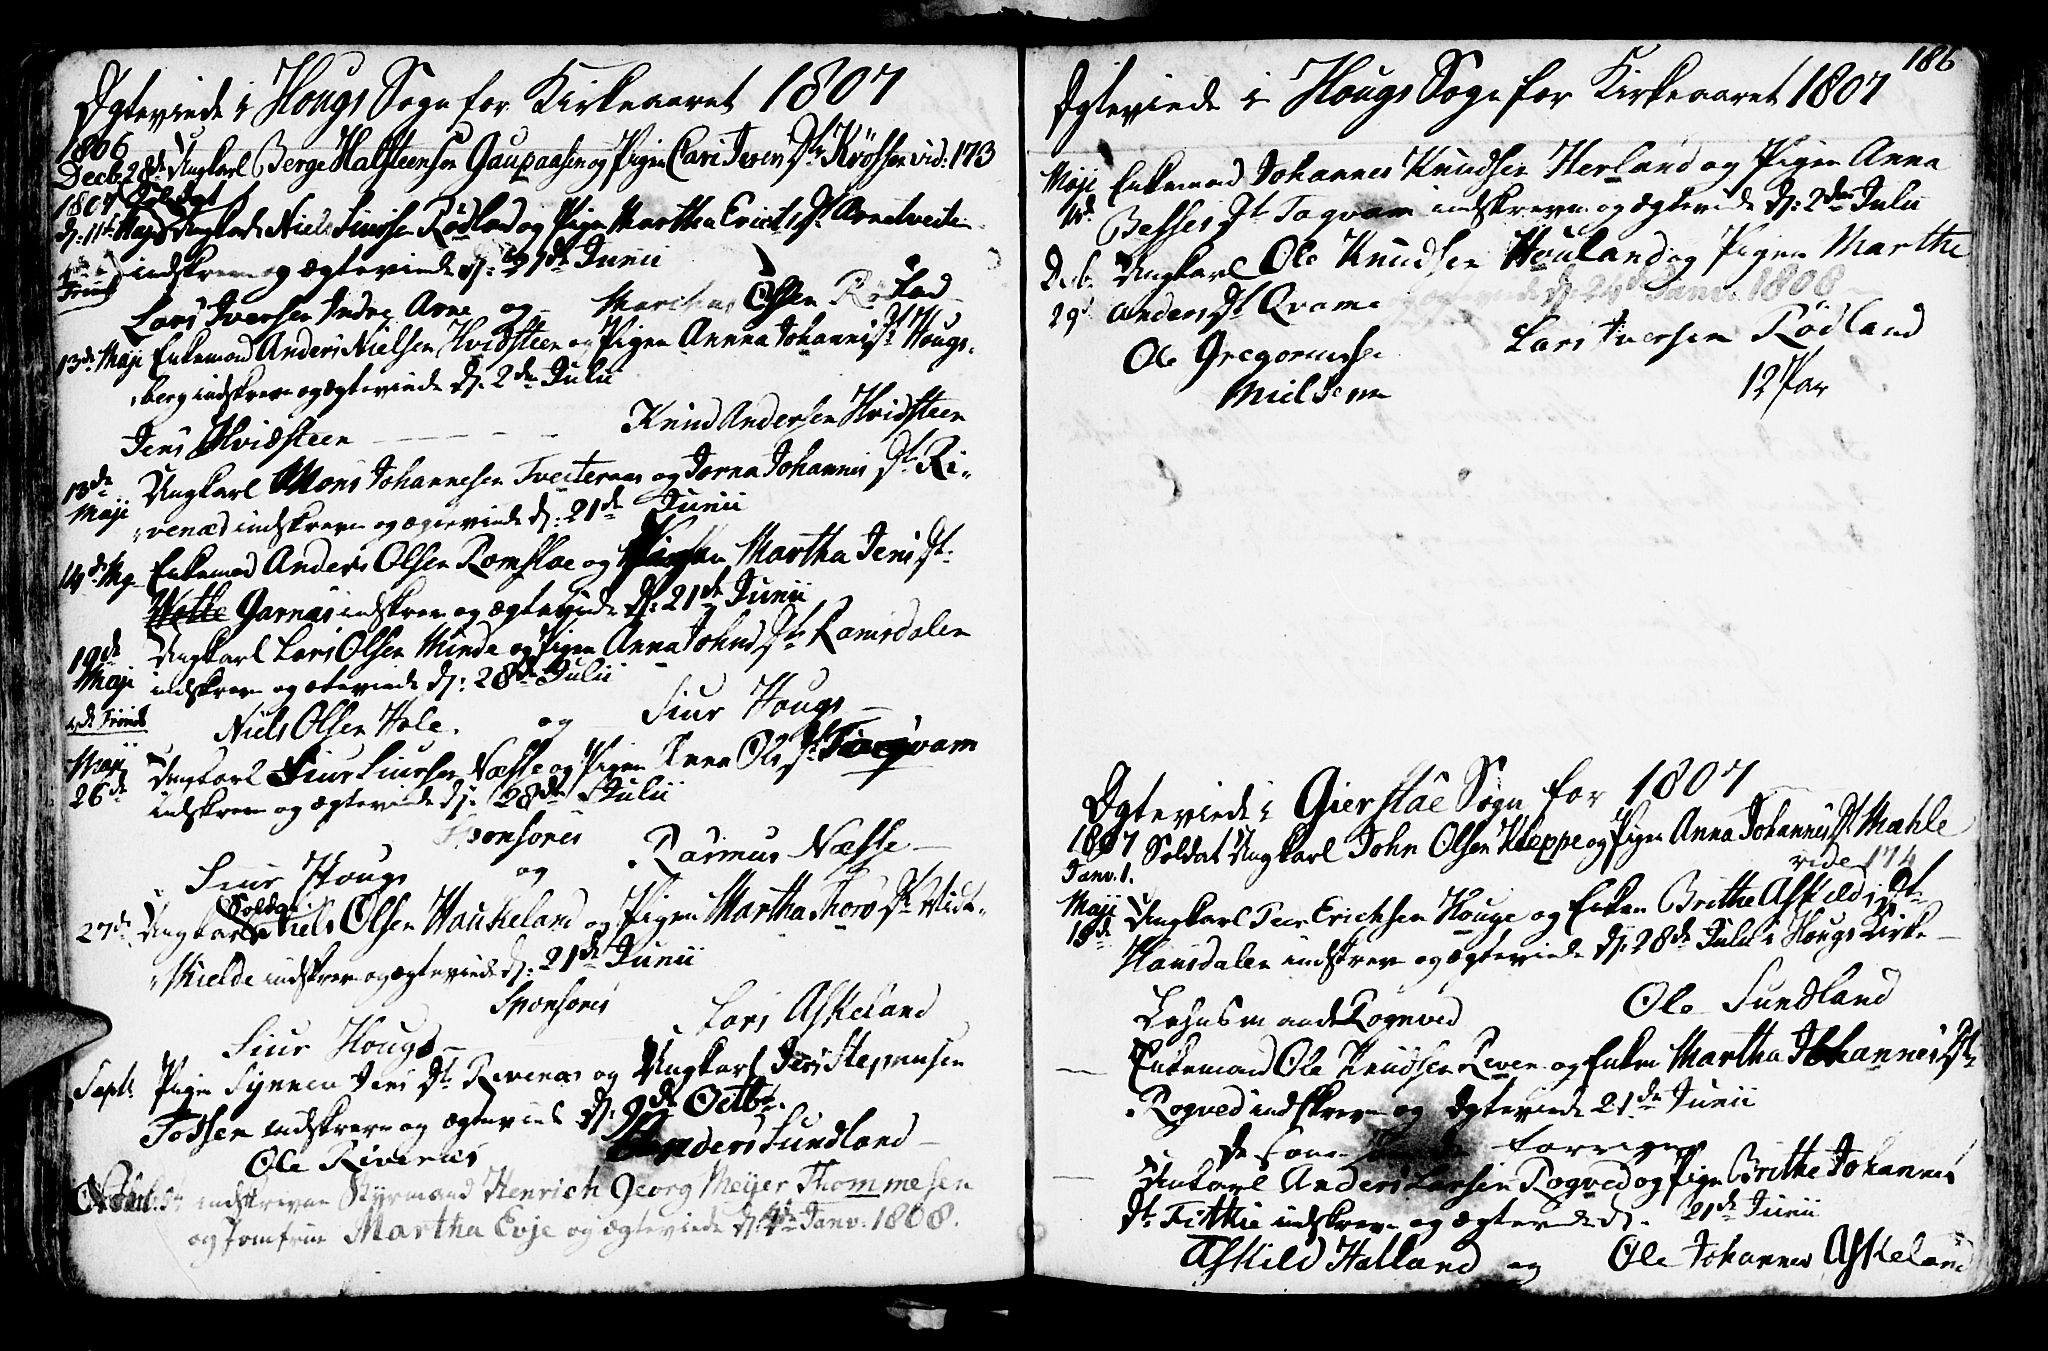 Ægteviede i Hougs Sogn for Kirkeaaret 1807
1806
Decb. 28de Ungkarl Berge Halsteensen Gaupaasen og Pigen Cari Ivers Dtr Krossen vid: 173
1807 Soldat
d: 11te Maji Ungkarl Niels Siursen Rødland og Pigen Martha Erichs Dtr Arnetveiten
indskrevne og ægteviede d: 21de Junii
Trinit
Lars Iversen Indre Arne og Olsen Rødland
13de Maji Enkemand Anders Nielsen Hvidsteen og Pigen Anna Johannis Dtr Hougs-
berg indskrevne og ægteviede d. 2den Julii
Jens Hvidsteen Knud Andersen Hvidsteen
13de Maji Ungkarl Mons Johannesen Tveiteraas og Jorna Johannis Dtr Ri-
venæs indskrevne og ægteviede d: 21de Junii
14de Maji Enkemand Anders Olsen Romsloe og Martha Jens Dtr
Garnæs indskrevne og ægteviede d: 21de Junii
19de Maji Ungkarl Lars Olsen Minde og Pigen Anna Johns Dtr Ramsdalen
indskrevne og ægteviede d: 28de Julii
Niels Olsen Hole og Siur Hougs
Maji 26de Ungkarl Siur Siursen Næsse og Pigen Anna Ols Dtr Toqvam
indskrevne og ægteviede d: 28de Julii
Sponsores
Siur Hougs og Rasmus Næsse
27de Ungkarl Soldat Niels Olsen Haukeland og Pigen Martha Thors Dtr Midt-
Mielde indskrevne og ægteviede d: 21de Junii
Sponsores
Siur Hougs Lars Askeland
Septb. Pigen Synneva Jens Dtr Rivenæs og Ungkarl Jens Stephensen
Tossen indskrevne og ægteviede d: 9de Octbr.
Ole Rivenæs Anders Sundland
indskrevne Styrmand Henrich Georg Meijer Thommesen
og Jomfrue Martha Evje og ægteviede d: Janv. 1808.
186
Ægteviede i Hougs Sogn for Kirkeaaret 1807
Maji Enkemand Johannes Knudsen Herland og Pigen Anna
Besses Dtr Toqvam indskrevne og ægteviede d: 2den Julii
Decb. Ungkarl Ole Knudsen Houland og Pigen Marthe
29de Anders Dtr Qvame og ægteviede d: Janv. 1808
Ole Gregoriussen Lars Iversen Rødland
Mielsem 12 Par
Ægteviede i Gierstae Sogn for 1807
1807 Soldat Ungkarl John Olsen Kleppe og Pigen Anna Johannis Dtr Mæhle
Janv. 1. vide 174
Maji Ungkarl Peer Erichsen Houge og Enken Brithe Askilds Dtr
Hansdalen indskrevne og ægteviede d: 28de Julii i Hougs Kirke
Lehnsmand Rogned Ole Sundland
Enkemand Ole Knudsen Riven og Enken Martha Johannis Dtr
Rogved indskrevne og Ægteviede 21de Junii
de samme forrige
Ungkarl Anders Larsen Rogved og Pigen Brithe Johannis
Dtr Tittlie indskrevne og ægteviede d. 21de Junii
Askild Halland og Ole Johannes Askeland